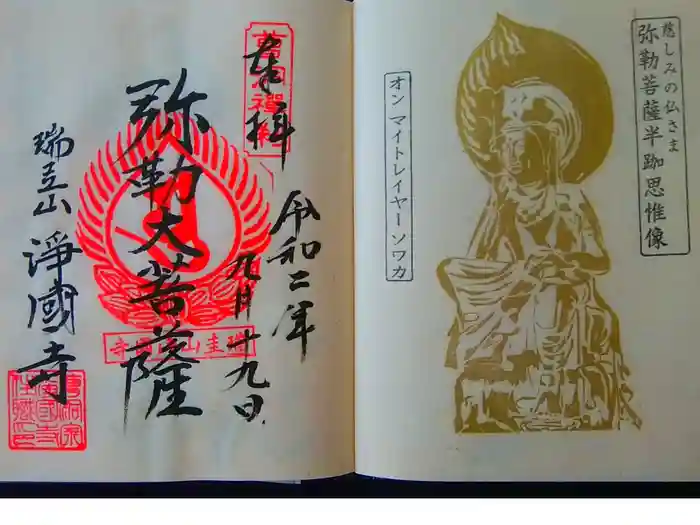 慈しみの仏さま
弥勒菩薩半跏思惟像
オン マイトレイヤー ソワカ
奉拝
令和二年
九月十九日
弥勒大菩薩
瑞圭山
淨國寺